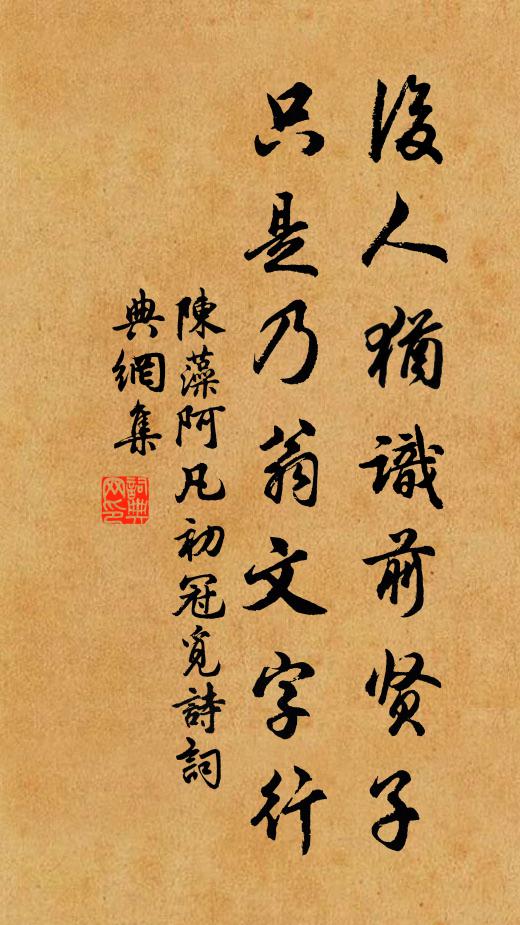 後人猶識前贤子
只是乃翁文字行
陳藻阿凡初冠覓詩詞
典網集
詞典
网印